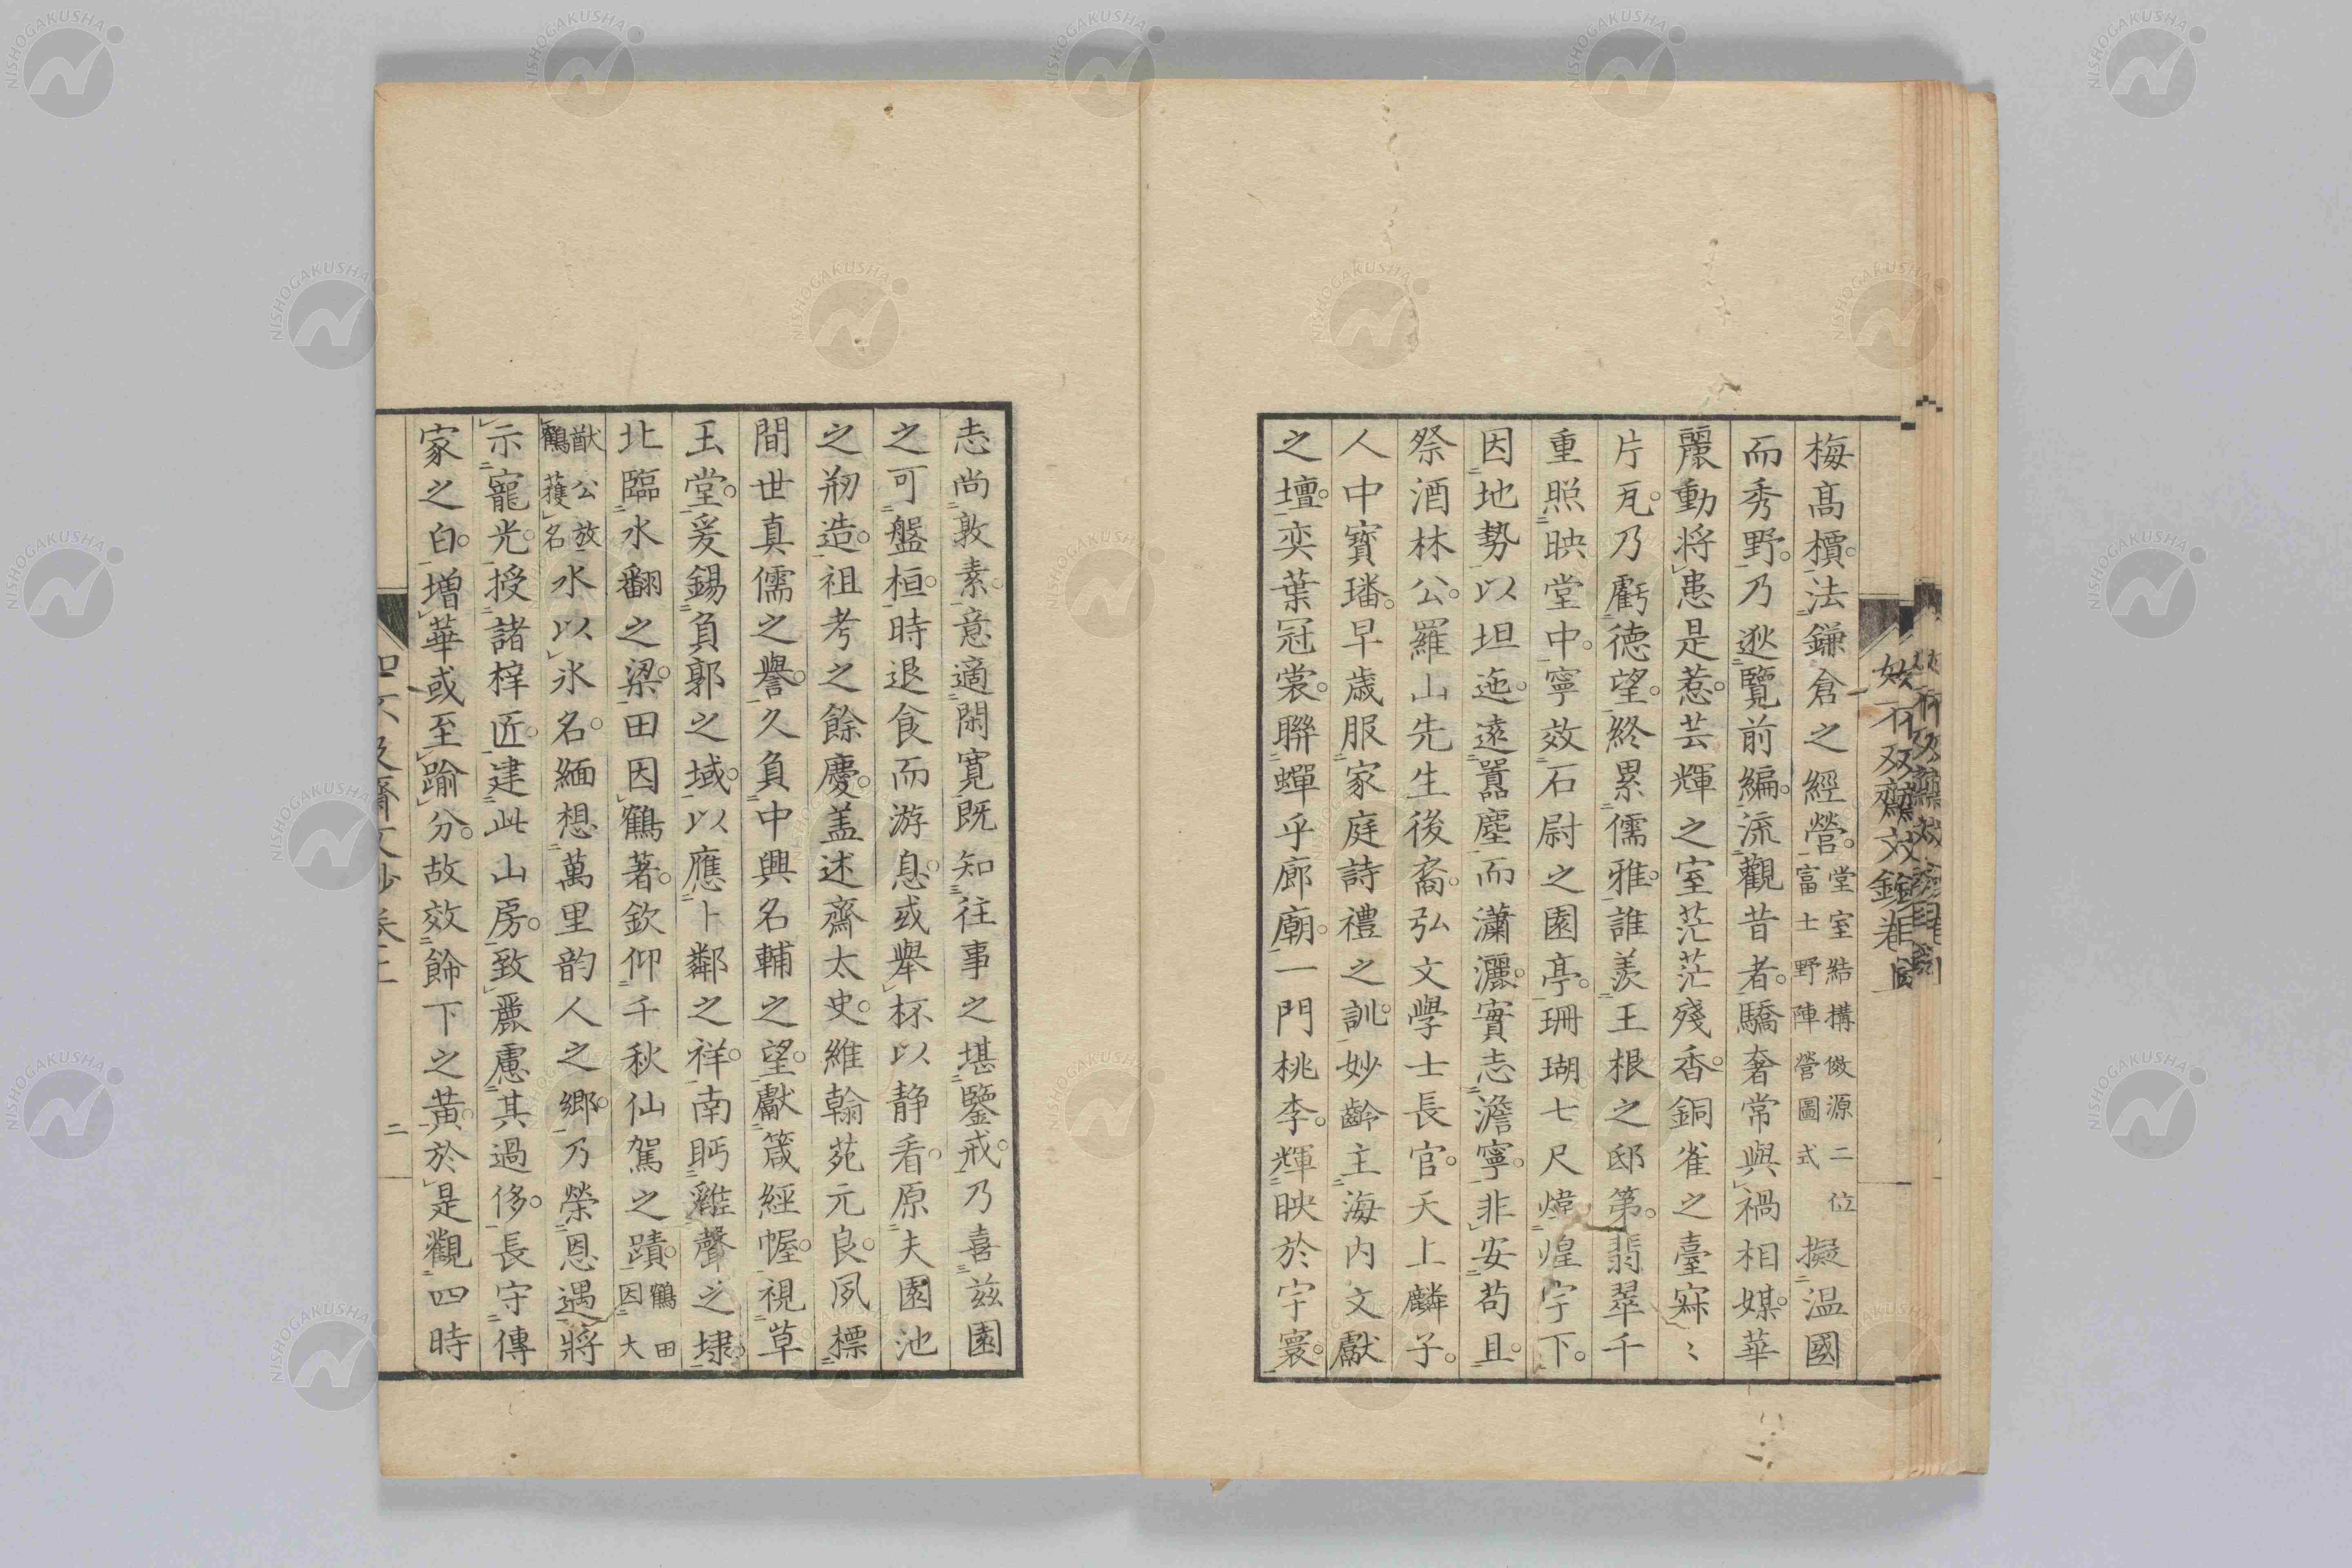 梅髙檟。法鎌倉之經營。堂室結構倣源二位富士野陣營圖式擬温國
而秀野。乃逖覽前編。流觀昔者。驕奢常與禍相媒。華
麗動將患是惹。芸輝之室茫茫殘香。銅雀之臺寂〻
片瓦。乃虧德望。終累儒雅。誰羨王根之邸第。翡翠千
重照映堂中。寧效石尉之園亭。珊瑚七尺煒煌宇下。
因地勢以坦迤。遠囂塵而瀟灑。實志澹寧。非安苟且。
祭酒林公。羅山先生後裔。弘文學士長官。天上麟子。
人中寳璠。早歳服家庭詩禮之訓。妙齡主海内文獻
之壇。奕葉冠裳。聯蟬乎廊廟。一門桃李。輝映於宇寰。
志尚敦素。意適閑寛。既知往事之堪鑒戒。乃喜茲園
之可盤桓。時退食而游息。或舉杯以静看。原夫園池
之剏造。祖考之餘慶。盖述齋太史。維翰苑元良。夙標
間世真儒之譽。久負中興名輔之望。獻箴經幄。視草
玉堂。爰錫負郭之域。以應卜鄰之祥。南眄雞聲之埭。
北臨水翻之梁。田因鶴著。欽仰千秋仙駕之蹟。鶴田因大
猷公放鶴獲名水以氷名。緬想萬里韵人之郷。乃榮恩遇將
示寵光。授諸梓匠。建此山房。致麗慮其過侈。長守傳
家之白。増華或至踰分。故效餙下之黄。於是觀四時
二
NISHOGAKUSHA